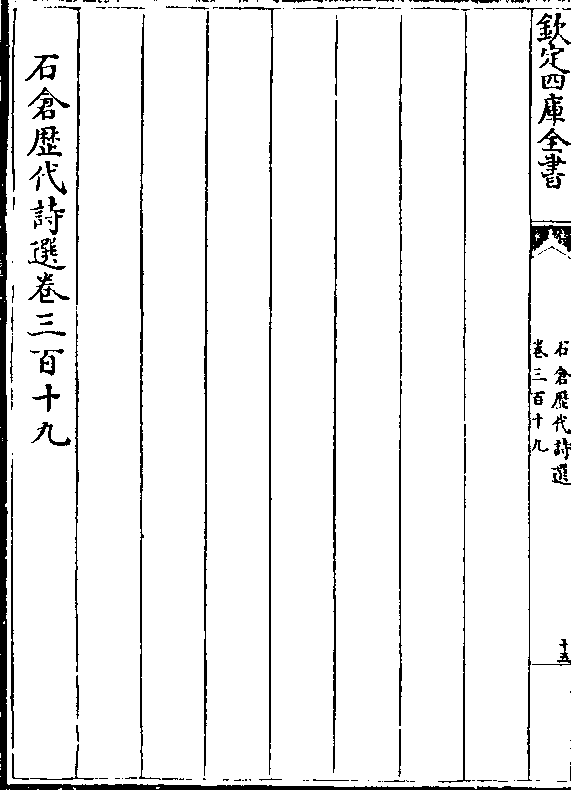 欽定四庫全書
石倉歷代詩選
卷三百十九
十五
石倉歷代詩選卷三百十九